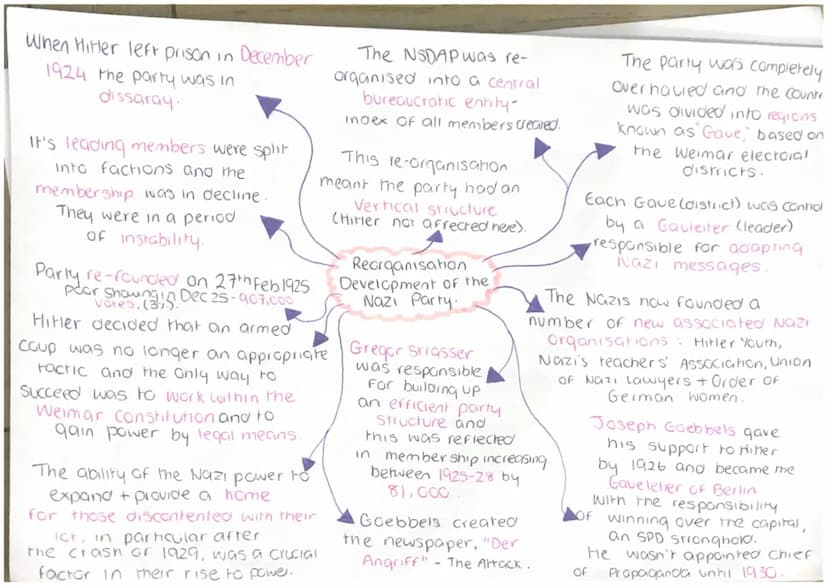 When Hitler left prison in December
1924 the party was in
dissaray.
It's leading members were split
into factions and the
membership was in decline.
They were in a period
of instability.
Party re-founded on 27th Feb 1925
poor showing in Dec 25 - 907,000
votes. (3%).
Hitler decided that an armed
coup was no longer an appropriate
tactic and the only way to
succeed was to work within the
Weimar constitution and to
gain power by legal means.
The ability of the Nazi power to
expand + provide a home
for those discontented with their
lot, in particular after
the crash of 1929, was a crucial
factor in their rise to power.
The NSDAP was re-
organised into a central
bureaucratic entity-
index of all members created.
This re-organisation
meant the party had an
vertical structure
(Hitler not affected here).
Reorganisation
Development of the
Nazi Party.
Gregor Strasser
was responsible
for building up
an efficient party
structure and
this was reflected
in membership increasing
between 1925-28 by
81,000.
Goebbels created
the newspaper, "Der
Angriff" - The Attack.
The party was completely
overhauled and the countr
was divided into regions
known as "Gaue," based on
the Weimar electoral
districts.
Each Gaue (district) was control
by a Gauleiter (leader)
responsible for adapting
Nazi messages.
The Nazis now founded a
number of new associated Nazi
organisations: Hitler Youth,
Nazi's teachers' Association, Union
of Nazi lawyers + Order of
German women.
Joseph Goebbels gave
his support to Hitler
by 1926 and became the
Gaueleiter of Berlin
with the responsibility
of winning over the capital,
an SPD stronghold.
He wasn't appointed chief
of Propaganda until 1930.